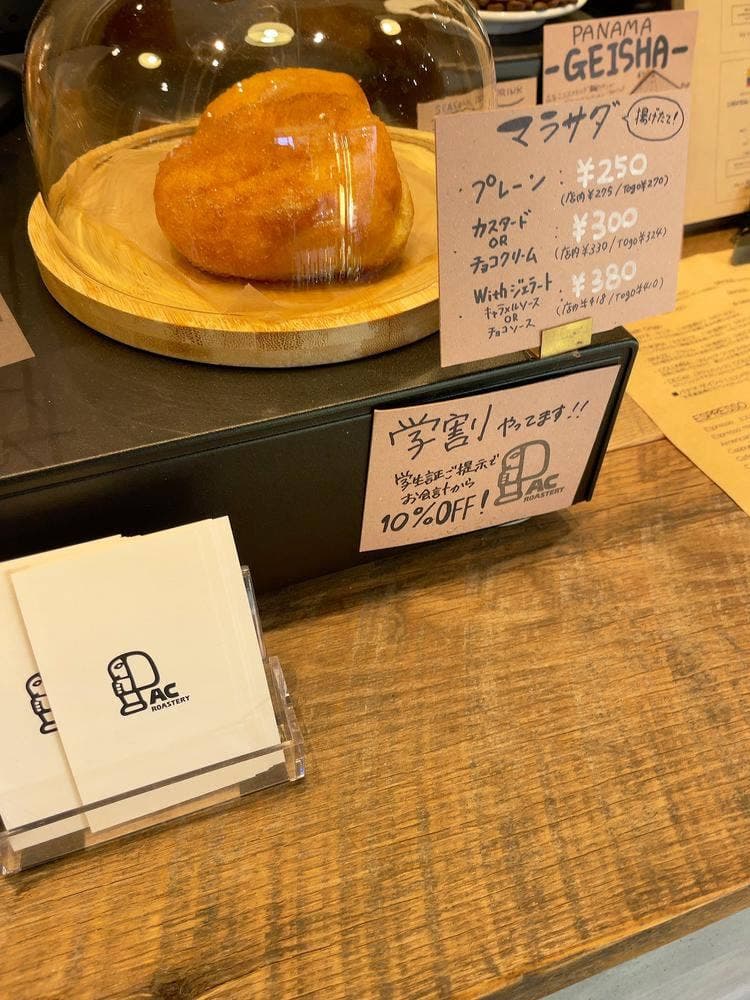 PANAMA
-GEISHA-
マラサダ
揚げたて!
・プレーン : ¥250
(店内¥275/Togo¥270)
・カスタード : ¥300
OR
チョコクリーム
(店内¥330/Togo¥324)
・Withジェラート : ¥380
(店内¥418/Togo¥410)
キャラメルソース
OR
チョコソース
学割やってます!!
学生証ご提示で
お会計から
10%OFF!
PAC
ROASTERY
PAC
ROASTERY
ESPRESSO